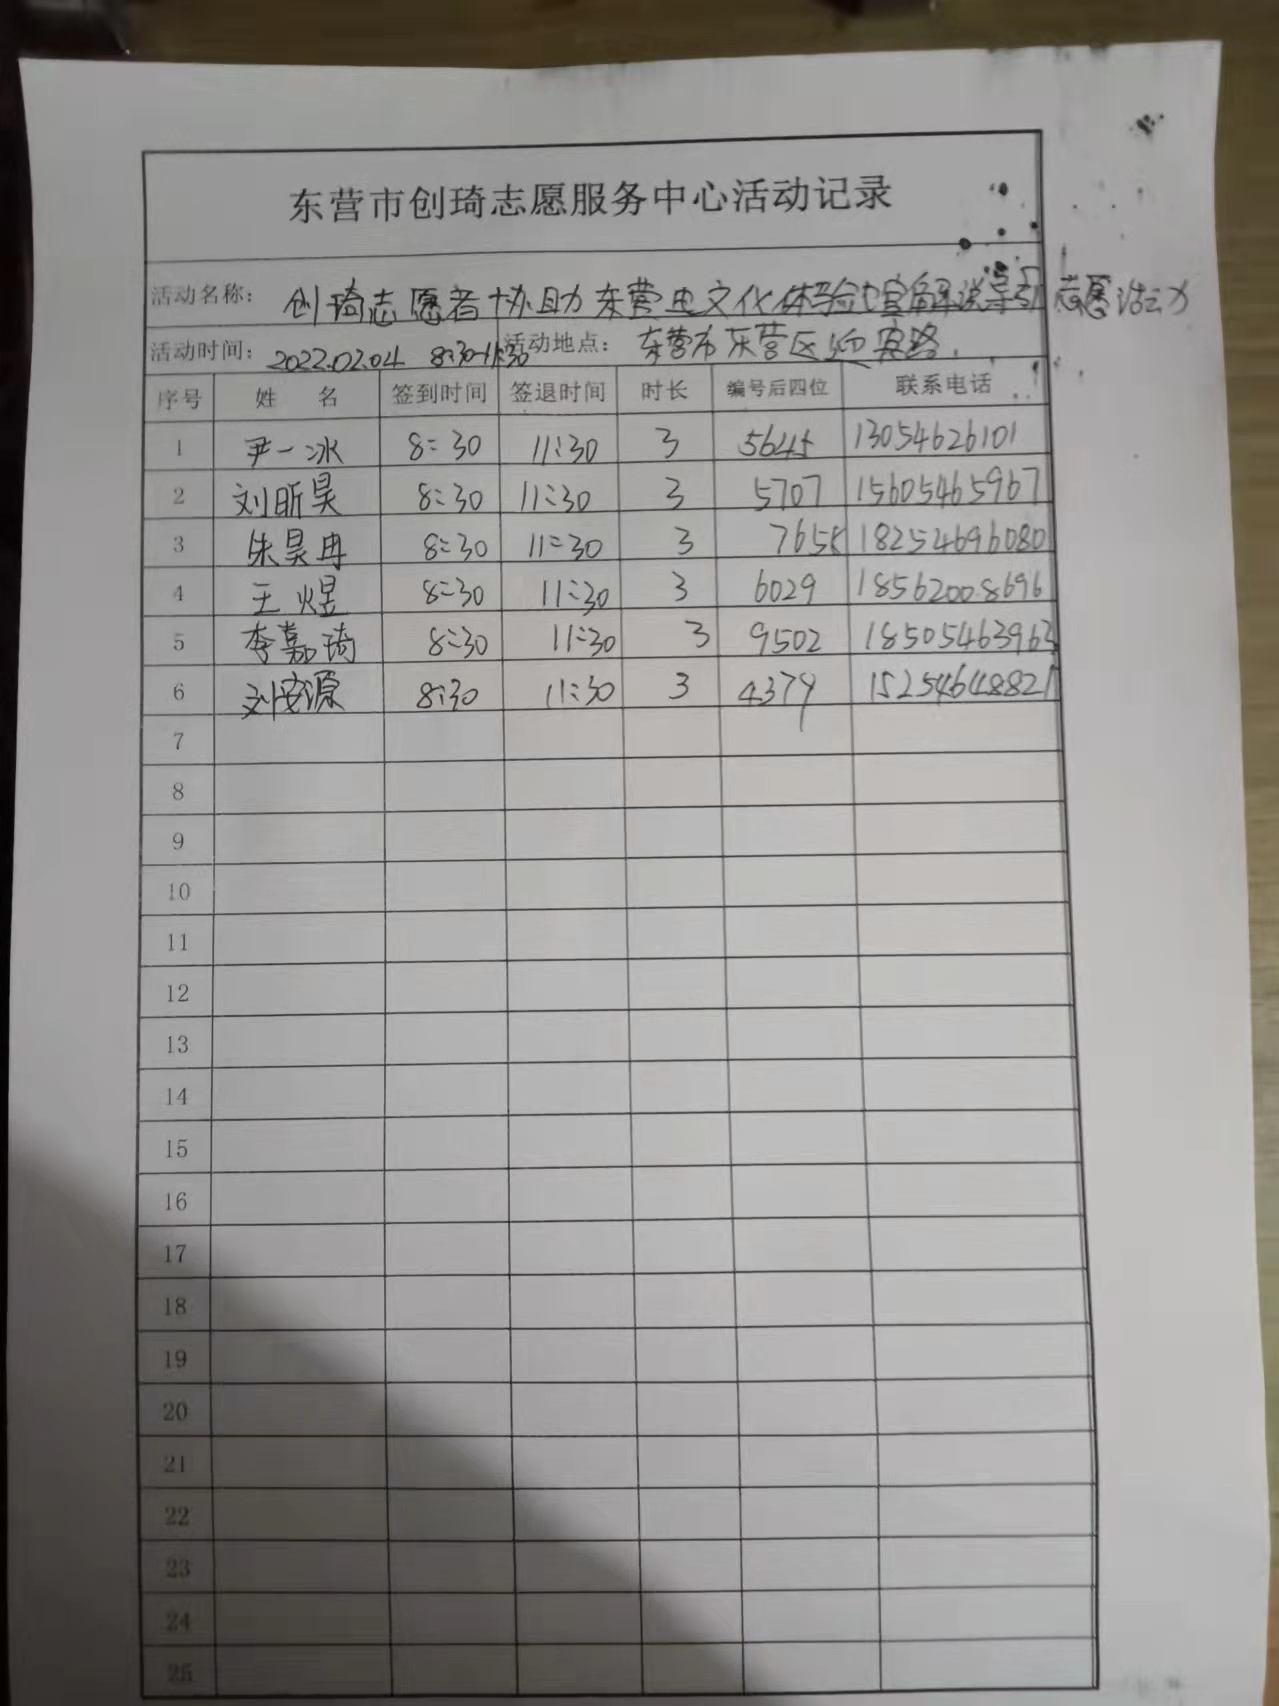 东营市创琦志愿服务中心活动记录
活动名称: 创琦志愿者协助东营史文化体验馆解说导引志愿活动
活动时间: 2022.02.04 8:30-11:30 活动地点: 东营市东营区迎宾路
序号 姓 名 签到时间 签退时间 时长 编号后四位 联系电话
1 尹一冰 8:30 11:30 3 5645 13054626101
2 刘昕昊 8:30 11:30 3 5707 15605465967
3 朱昊冉 8:30 11:30 3 7655 18254696080
4 王煜 8:30 11:30 3 6029 18562008696
5 李嘉琦 8:30 11:30 3 9502 18505463963
6 刘安源 8:30 11:30 3 4379 15254648821
7
8
9
10
11
12
13
14
15
16
17
18
19
20
21
22
23
24
25